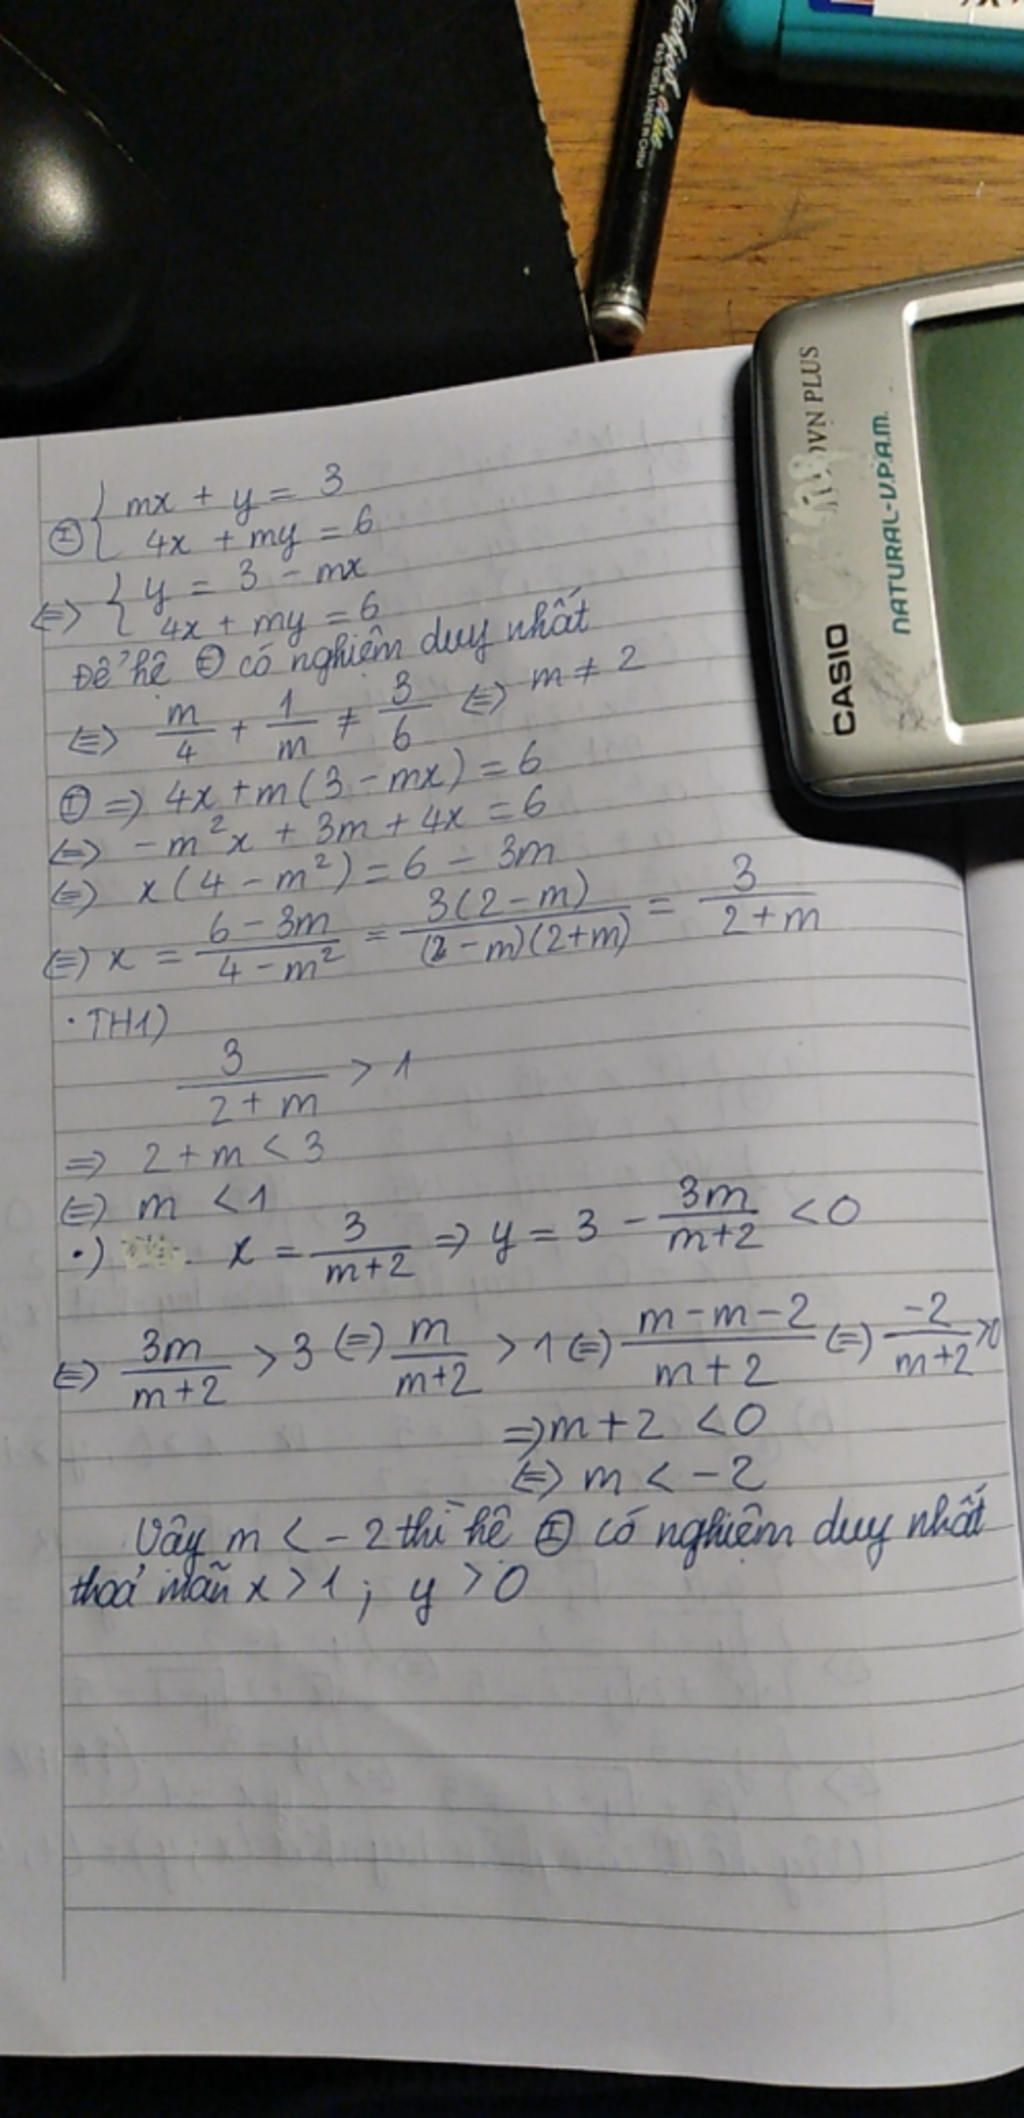 Techjob blue
CASIO
VN PLUS
NATURAL-V.P.A.M.
Ⓘ { mx + y = 3
4x + my = 6
⇔ { y = 3 - mx
4x + my = 6
Để hệ Ⓘ có nghiệm duy nhất
⇔ m/4 + 1/m ≠ 3/6 ⇔ m ≠ 2
Ⓘ ⇒ 4x + m(3 - mx) = 6
⇔ -m²x + 3m + 4x = 6
⇔ x(4 - m²) = 6 - 3m
⇔ x = (6 - 3m)/(4 - m²) = 3(2 - m)/(2 - m)(2 + m) = 3/(2 + m)
· TH1)
3/(2 + m) > 1
⇒ 2 + m < 3
⇔ m < 1
·) x = 3/(m + 2) ⇒ y = 3 - 3m/(m + 2) < 0
⇔ 3m/(m + 2) > 3 ⇔ m/(m + 2) > 1 ⇔ (m - m - 2)/(m + 2) ⇔ -2/(m + 2) > 0
⇒ m + 2 < 0
⇔ m < -2
Vậy m < -2 thì hệ Ⓘ có nghiệm duy nhất
thoả mãn x > 1 ; y > 0